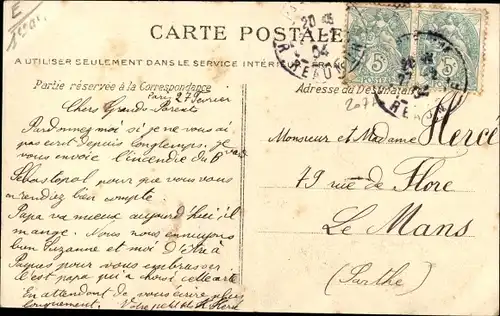 E
CARTE POSTALE
A UTILISER SEULEMENT DANS LE SERVICE
Partie réservée à la Correspondance
Adresse du Destinataire
Paris 27 Février
Chers Grands-Parents
Pardonnez moi si je ne vous ai
pas écrit depuis longtemps. Je
vous envoie l'incendie du Bd
Sébastopol pour que vous vous
rendiez bien compte.
Papa va mieux aujourd'hui, il
mange. Nous nous ennuyons
bien Suzanne et moi d'être à
Paques pour vous embrasser
C'est papa qui a choisi cette carte
En attendant de vous écrire plus
longuement. Votre petit
Monsieur et Madame Hercé
79 rue de Flore
Le Mans
(Sarthe)
5c
POSTES
5c
POSTES
04
REAUMUR